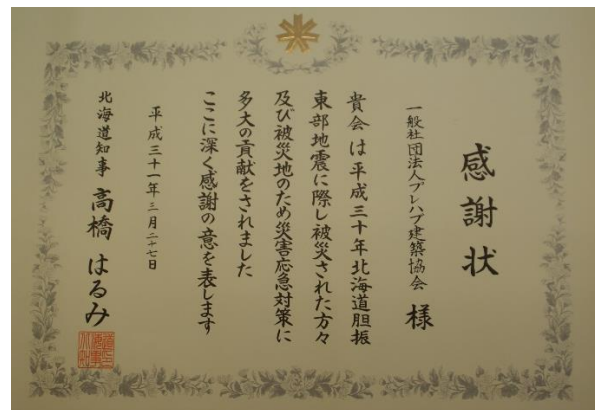 感謝状
一般社団法人プレハブ建築協会 様
貴会は平成三十年北海道胆振
東部地震に際し被災された方々
及び被災地のため災害応急対策に
多大の貢献をされました
ここに深く感謝の意を表します
平成三十一年三月二十七日
北海道知事 高橋はるみ